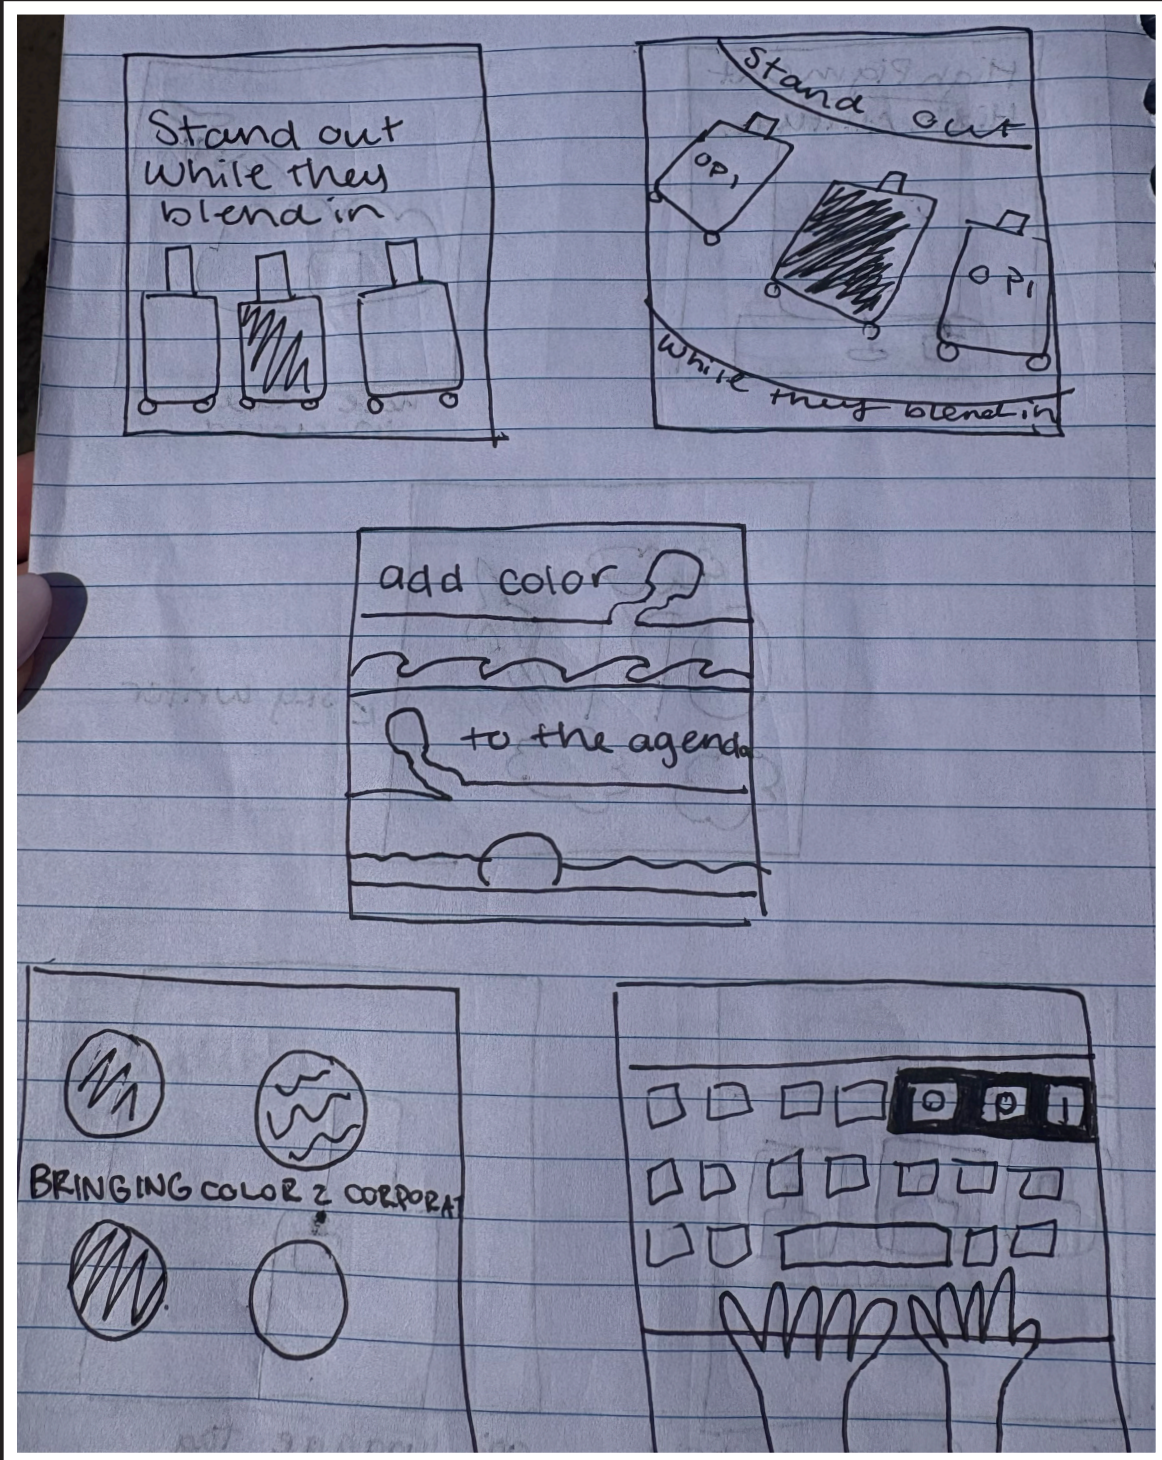 Stand out
while they
blend in
Stand out
OPI
OPI
while they blend in
add color
to the agenda
BRINGING COLOR 2 CORPORAT
O P I